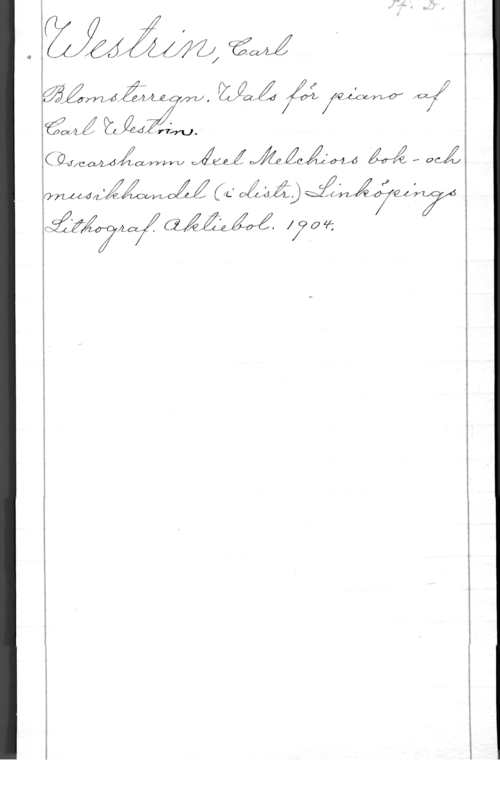 Pf. Sv.
Westrin, Carl
Blomsterregn. Wals för piano af
Carl Westrin.
Oscarshamn Axel Melchiors bok- och
musikhandel (i distr.) Linköpings
Lithograf. Aktiebol. 1904.